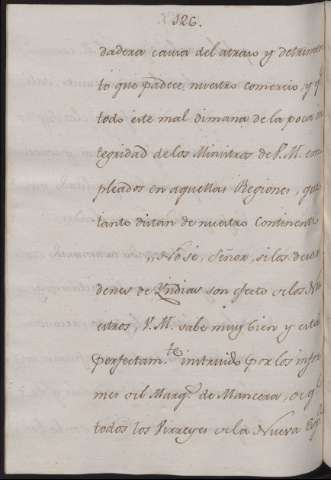 126.
dadera causa del atraso y detrimen
to que padece nuestro comercio, y q
todo este mal dimana de la poca in
tegridad de los Ministros de V.M. em
pleados en aquellas Regiones, que
tanto distan de nuestro Continente
No sé, Señor, si los desor
denes de Yndias son efecto de los Mi
nistros, V.M. sabe muy bien y está
perfectam.te instruido por los infor
mes del Marq.s de Mancera, de q
todos los Virreyes de la Nueva Esp